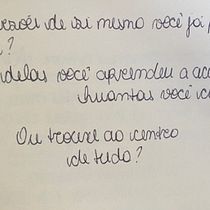 de si mesmo você já
?
delas você aprendeu a
quantas você
Ou trouxe ao centro
de tudo?